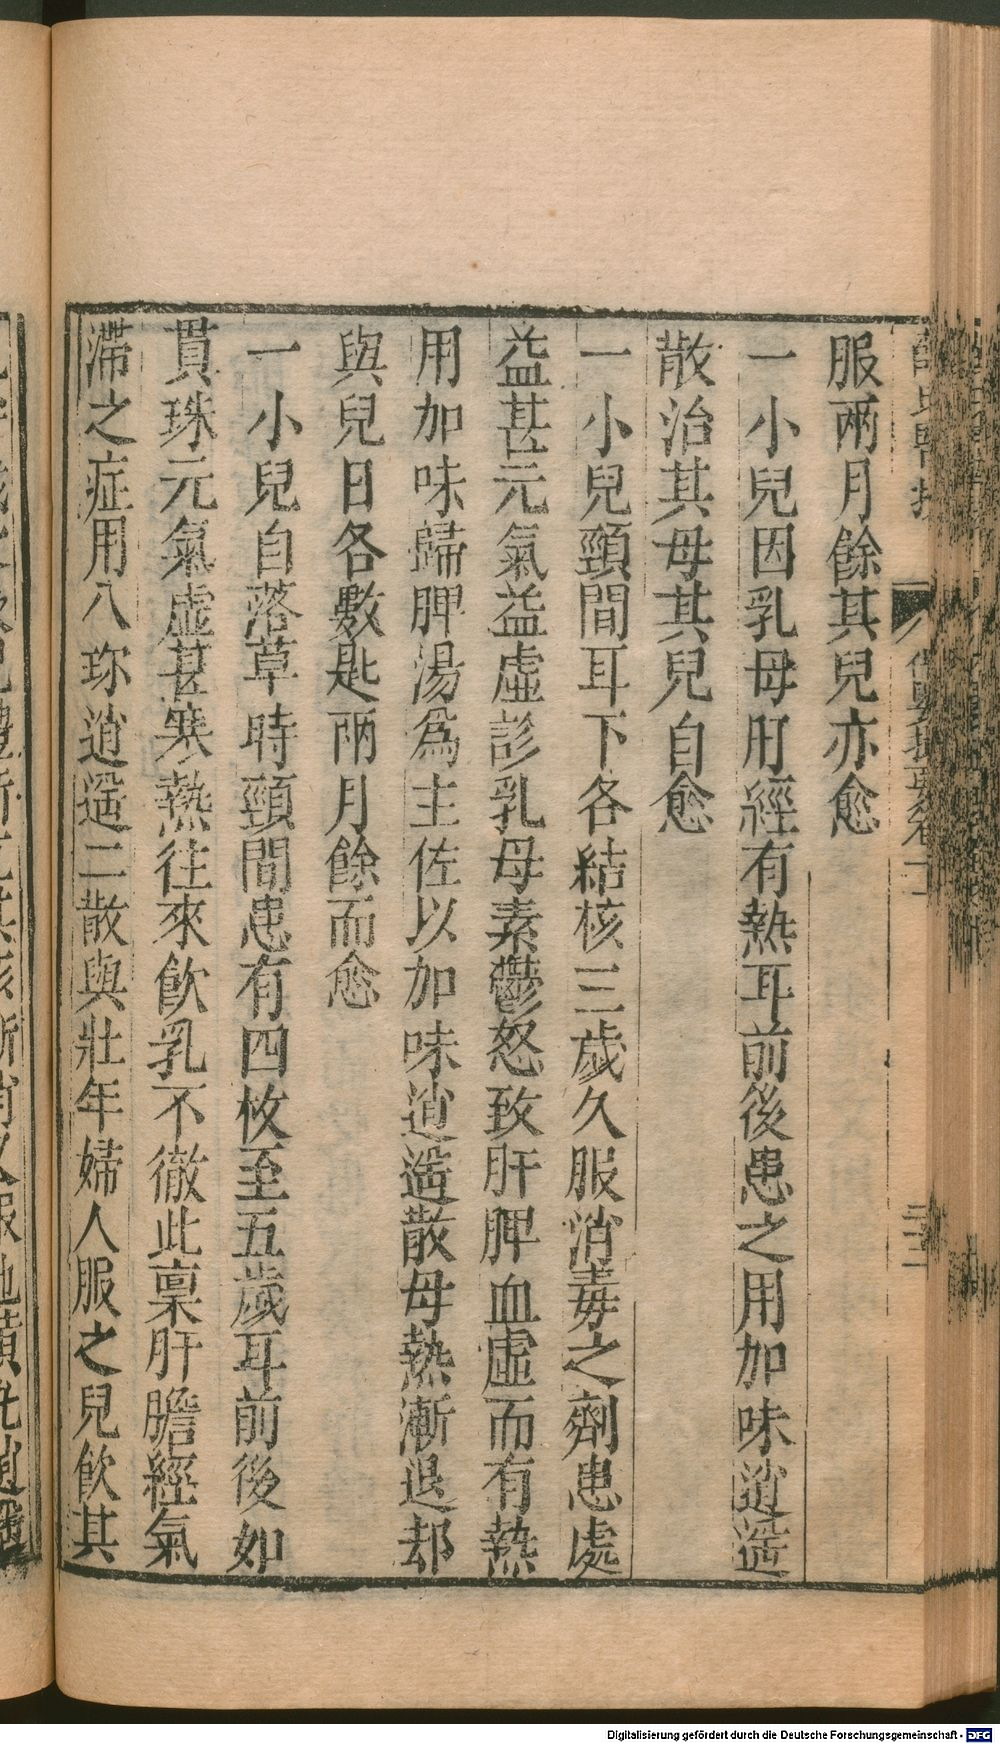 服兩月餘其兒亦愈
一小兒因乳母肝經有熱耳前後患之用加味逍遥
散治其母其兒自愈
一小兒頸間耳下各結核三歲久服消毒之劑患處
益甚元氣益虛診乳母素鬱怒致肝脾血虛而有熱
用加味歸脾湯爲主佐以加味逍遥散母熱漸退却
與兒日各數匙兩月餘而愈
一小兒自落草時頸間患有四枚至五歲耳前後如
貫珠元氣虛甚寒熱往來飲乳不徹此禀肝膽經氣
滯之症用八珎逍遥二散與壯年婦人服之兒飲其
Digitalisierung gefördert durch die Deutsche Forschungsgemeinschaft - DFG